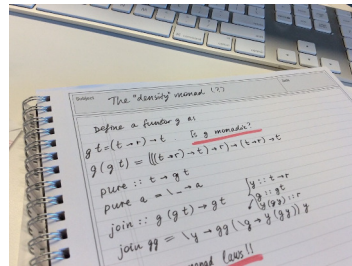 Subject
The "density" monad (?)
Date
Define a functor g as
g t = (t → r) → t Is g monadic?
g (g t) = (((t → r) → t) → r) → (t → r) → t
pure :: t → g t
pure a = \_ → a
join :: g (g t) → g t
y :: t → r
g :: g t
y (g y) :: r
join gg = \y → gg (\g → y (g y)) y
monad laws!!